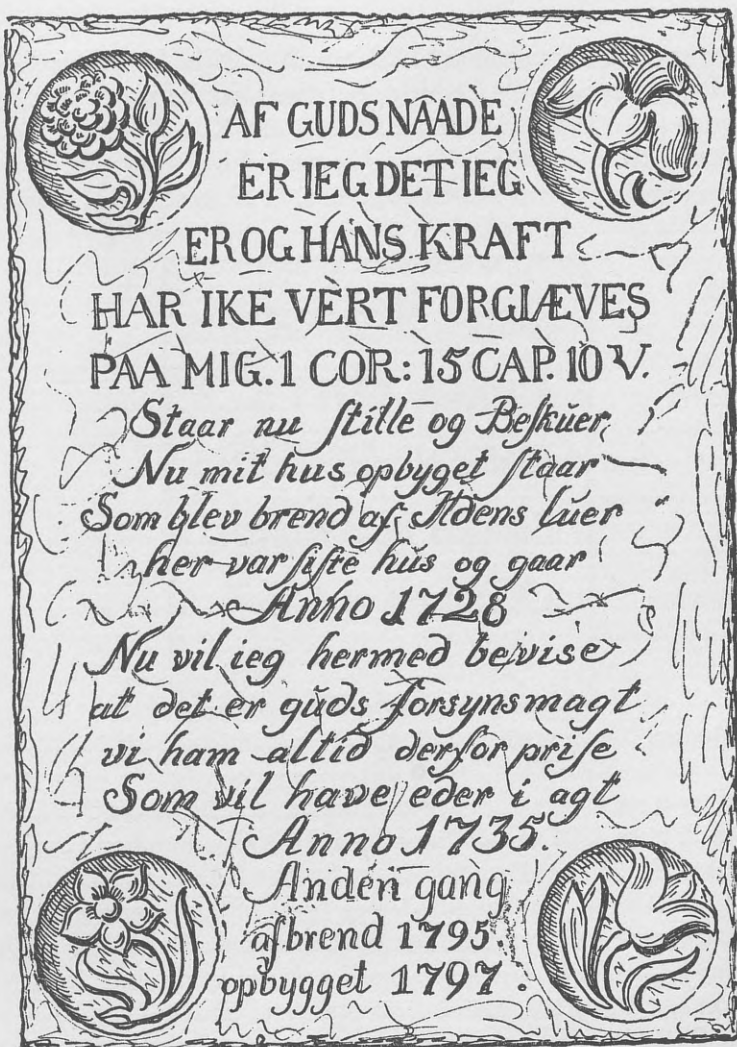 AF GUDS NAADE
ER IEG DET IEG
ER OG HANS KRAFT
HAR IKE VERT FORGIÆVES
PAA MIG. 1 COR: 15 CAP. 10 V.
Staar nu ſtille og Beſkuer
Nu mit hus opbyget ſtaar
Som blev brend af Ildens luer
her var ſiſte hus og gaar
Anno 1728
Nu vil ieg hermed bevise
at det er guds forsynsmagt
vi ham altid derfor priſe
Som vil have eder i agt
Anno 1735.
Anden gang
afbrend 1795.
opbygget 1797.